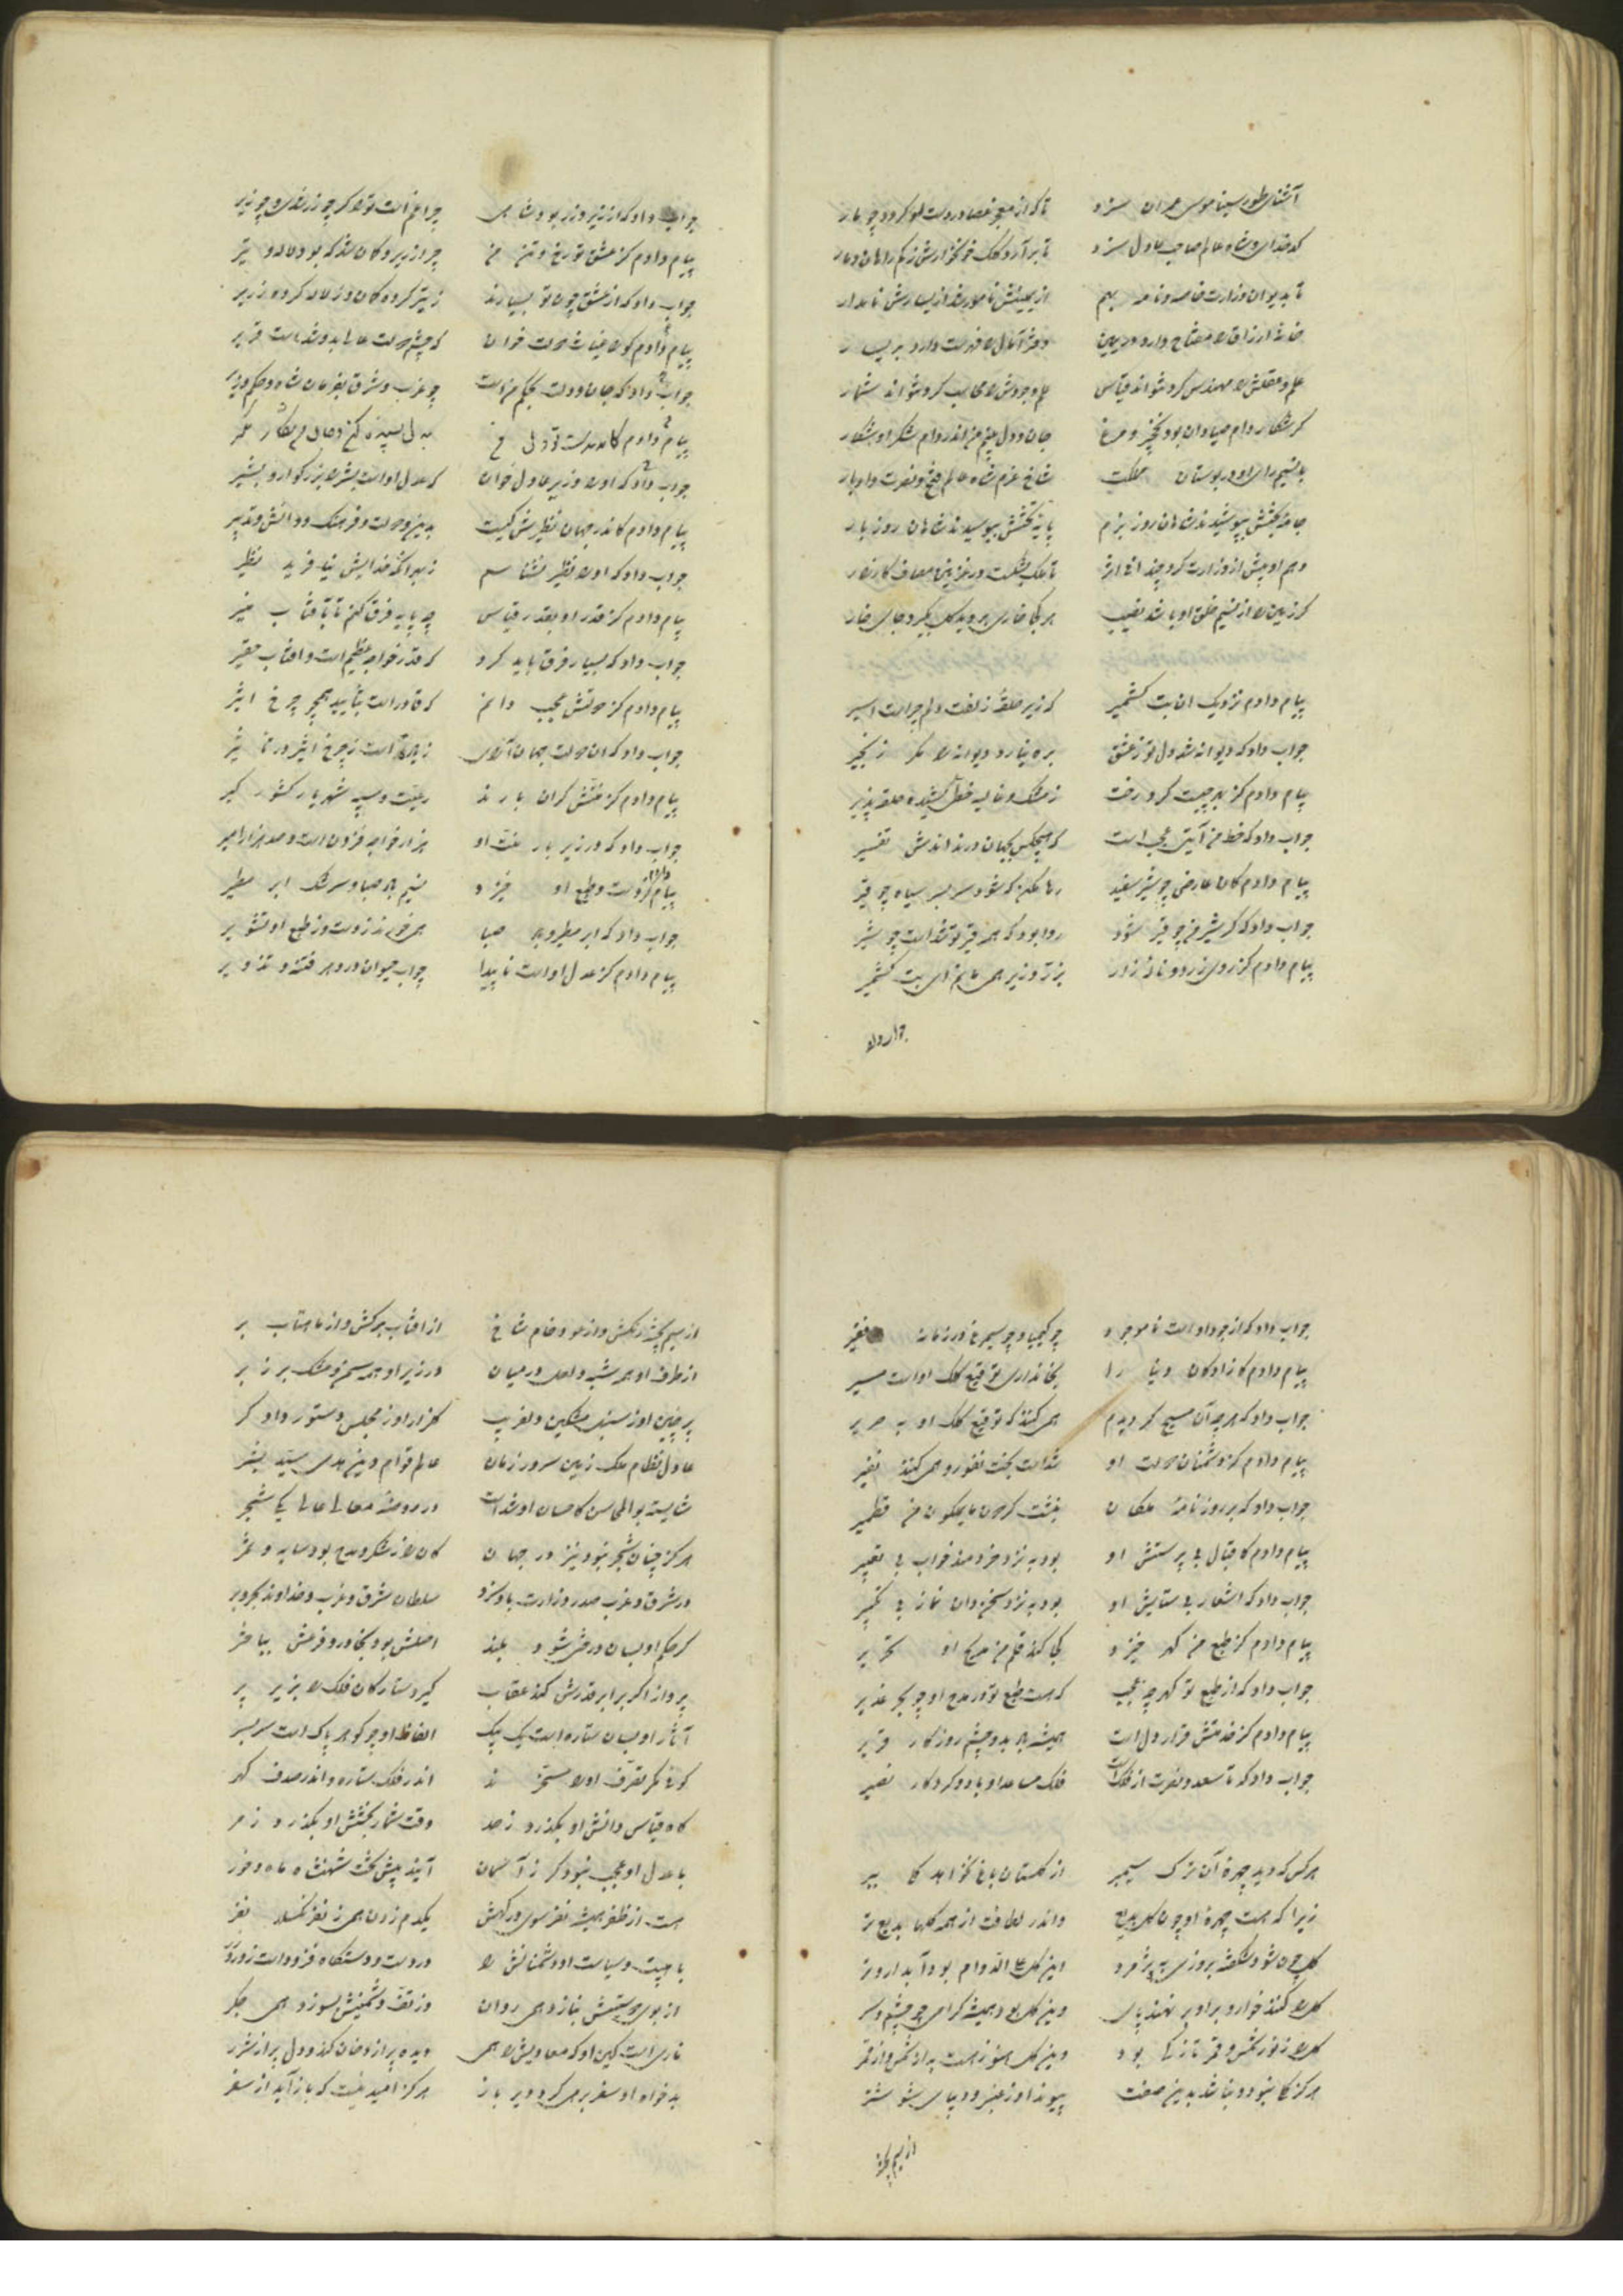 آشنای طور سینا موسی عمران سزد تا که از معجز عصا در دست او گردد چو مار
کدخدای شاه عالم صاحب عادل سزد تا برآرد کلک خونخوارش ز
تا بدیوان وزارت خاصه و نامه بهم از یمینش نامور شد از یسارش نامدار
خانه ارزاق را مفتاح دارد در یمین دفتر آمال را فهرست دارد بر یسار
علم و عقلش را مهندس کرد نتواند قیاس حلم و جودش را محاسب کرد نتواند شمار
گر شکار دام صیادان بود نخچیر و مرغ جان و دل بینم من اندر دام شکر او شکار
بد نسیم رای او در بوستان مملکت شاخ عزم شاه عالم فتح و نصرت داد بار
جامه بختش بپوشیدند شاهان روز بزم پایه تختش ببوسیدند شاهان روز بار
وهم او پیش از وزارت کرد چندانی اثر تا ملک بشکست در غزنین مصاف کارزار
گر زمین را از نسیم خلق او باشد نصیب هر کجا خاری بروید گل بگیرد جای خار
پیام دادم نزدیک آن بت کشمیر که زیر حلقه زلفت دلم چراست اسیر
جواب داد که دیوانه شد دل تو ز عشق بره نیارد دیوانه را مگر زنجیر
پیام دادم کز بهر چیست گرد رخت ز مشک و غالیه خطی کشیده حلقه پذیر
جواب داد که خط من آیتی عجب است که هیچکس بجهان در نداندش تفسیر
پیام دادم کان عارض چو شیر سفید رها مکن که شود سر بسر سیاه چو قیر
جواب داد که گر شیر من چو قیر شود روا بود که همه قیر تو شدست چو شیر
پیام دادم کز روی زرد و ناله زار بزر و زیر همی مانم ای بت کشمیر
جواب داد
جواب داد که از زیر و زر بود شاهی چراغ است تو را گر چو زر شدی و چو زیر
پیام دادم کز عشق تو رخ و تن من چرا زریر و کمان شد که بود لاله و تیر
جواب داد که از عشق چون تو بسیارند ز تیر کرده کمان وز لاله کرده زریر
پیام دادم کو را غیاث دولت خوان که چشم دولت عالی بدو شدست قریر
جواب داد که جان و دلت بحکم من است چو غرب و شرق بفرمان شاه و حکم وزیر
پیام دادم
جواب داد که او را وزیر عادل خوان که عدل او است بشر را بزرگوار و بشیر
پیام دادم کاندر جهان نظیرش کیست بدین و دولت و فرهنگ و دانش و تدبیر
جواب داد که او را نظیر نشناسم ز بهر آنکه خدایش نیافرید نظیر
پیام دادم کز قدر او بقدر قیاس چه پایه فرق کنم تا بآفتاب منیر
جواب داد که بسیار فرق باید کرد که قدر خواجه عظیم است و آفتاب حقیر
پیام دادم کز دولتش عجب دانم که قادر است بتأیید همچو چرخ اثیر
جواب داد که آن دولت جهان آرای زیاده است ز چرخ اثیر در تأثیر
پیام دادم کز منتش گران بارند رعیت و سپه شهریار کشور گیر
جواب داد که در زیر بار منت او هزار خواجه فزون است و صد هزار امیر
پیام دادم کز دست و طبع او خیزد نسیم باد صبا و سرشک ابر مطیر
جواب داد که ابر مطیر و باد صبا همی خورند ز دست و ز طبع او تشویر
پیام دادم کز عدل او است ناپیدا چو آب حیوان در دهر فتنه و تزویر
جواب داد که از جود او است ناموجود چو کیمیا و چو سیمرغ در زمانه فقیر
پیام دادم کازادگان دنیا را بجانداری توقیع کلک او است مسیر
جواب داد که هر چه آن مسیح کرد بدم همی کند که توقیع کلک او به صریر
پیام دادم کز دشمنان دولت او شدست بخت نفور و همی کند نفیر
جواب داد که بر روزنامه ملکان نبشت گردون مایملکون من قطمیر
پیام دادم کاقبال بی پرستش او بود به نزد خردمند خواب بی تعبیر
جواب داد که اشعار بی ستایش او بود به نزد سخن دان نماز بی تکبیر
پیام دادم کز طبع من گهر خیزد بجا کند قلم من مدیح او تحریر
جواب داد که از طبع تو گهر چه عجب که هست طبع تو در مدح او چو بحر غدیر
پیام دادم کز خدمتش قرار دل است همیشه باد بدو چشم روزگار قریر
جواب داد که تا سعد و نصرت از فلکست فلک مساعد او باد و کردگار نصیر
هر کس که دید چهره آن ترک سیمبر از گلستان باغ نخواهد گل ببر
زیرا که هست چهره او چون گل بدیع واندر لطافت از همه گلها بدیع تر
گل چون شود شکفته بروزی بپژمرد این گل علی الدوام بود آبدار و تر
گل را کنند خوار و برو بر نهند پای وین گل بود همیشه گرامی چو چشم و سر
گل را ز نور شمس و قمر تازگی بود وین گل هنوز هست به از شمس و از قمر
هرگز گلی نبود و نباشد بدین صفت پیوند او ز عنبر و دیبای شوشتر
از سیم پخته
از سیم پخته رنگش و از عود خام شاخ از آفتاب برگش و از ماهتاب بر
از طرف او همه شبه و لعل در میان در زیر او همه سمن و مشک بر زبر
پرچین او ز سنبل مشکین دلفریب گلزار او ز مجلس دستور دادگر
عادل نظام ملک زمین سرور زمان عالم قوام دین هدی سید بشر
شایسته بوالمحاسن کاحسان او شدست در روضه معالی عالی یکی شجر
هرگز چنان شجر نبود نیز در جهان کان را ز شکر و مدح بود سایه و ثمر
در شرق و غرب صدر وزارت بدو سزد سلطان شرق و غرب و خداوند بحر و بر
گر حکم او بسان درختی شود بلند اصلش بود بخاور و فرعش بباختر
پرواز اگر برابر قدرش کند عقاب گیرد ستارگان فلک را بزیر پر
آثار او بسان ستاره است یک بیک الفاظ او چو گوهر پاک است سربسر
گوئی مگر تصرف او را مسخرند اندر فلک ستاره و اندر صدف گهر
گاه قیاس دانش او بگذرد ز حد وقت شمار بخشش او بگذرد ز مر
با عدل او عجب نبود گر ز آسمان آیند پیش تخت شهنشاه ماه و خور
هست از ظفر همیشه نفر سوی درگهش یکدم زدن همی ز نفر نگسلد نفر
با هیبت و سیاست او دشمنانش را در دست و دستگاه فزوده است زور و زر
از بوی دوستیش بنازد همی روان وز تف دشمنیش بسوزد همی جگر
ناری است کین او که معادیش را همی دیده پر از دخان کند و دل پر از شرر
بدخواه او سفر برمی گردد دیر باز هرگز امید نیست که باز آید از سفر